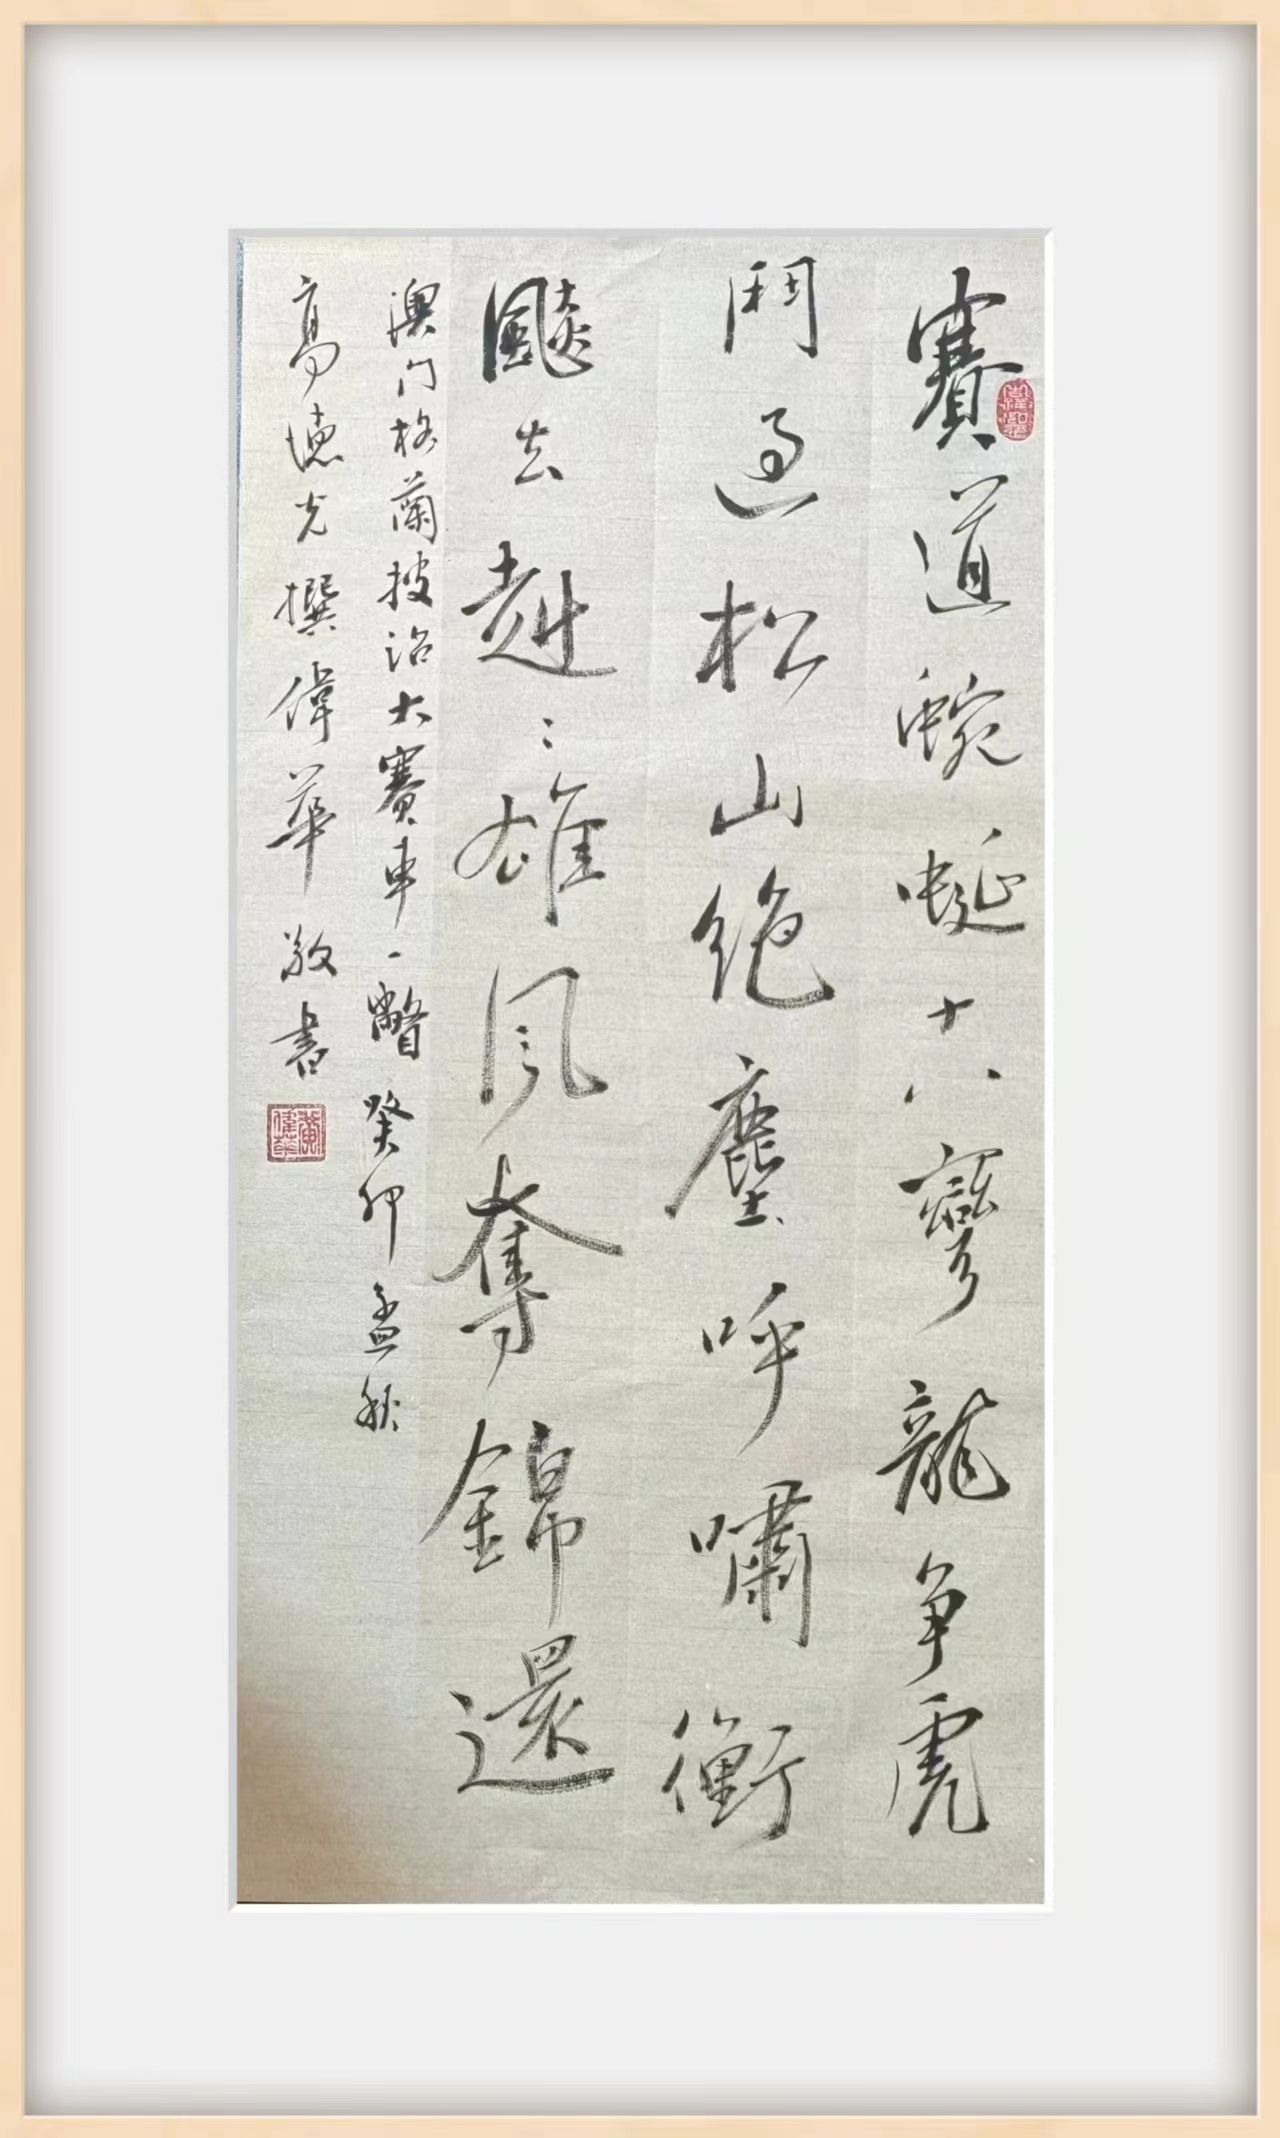 賽道蜿蜒十八彎龍争虎
鬥過松山絶塵呼嘯衝
飈去赳〻雄風奪錦還
澳门格蘭披治大賽車一瞥 癸卯孟秋
高德光撰偉華敬書
黄偉華